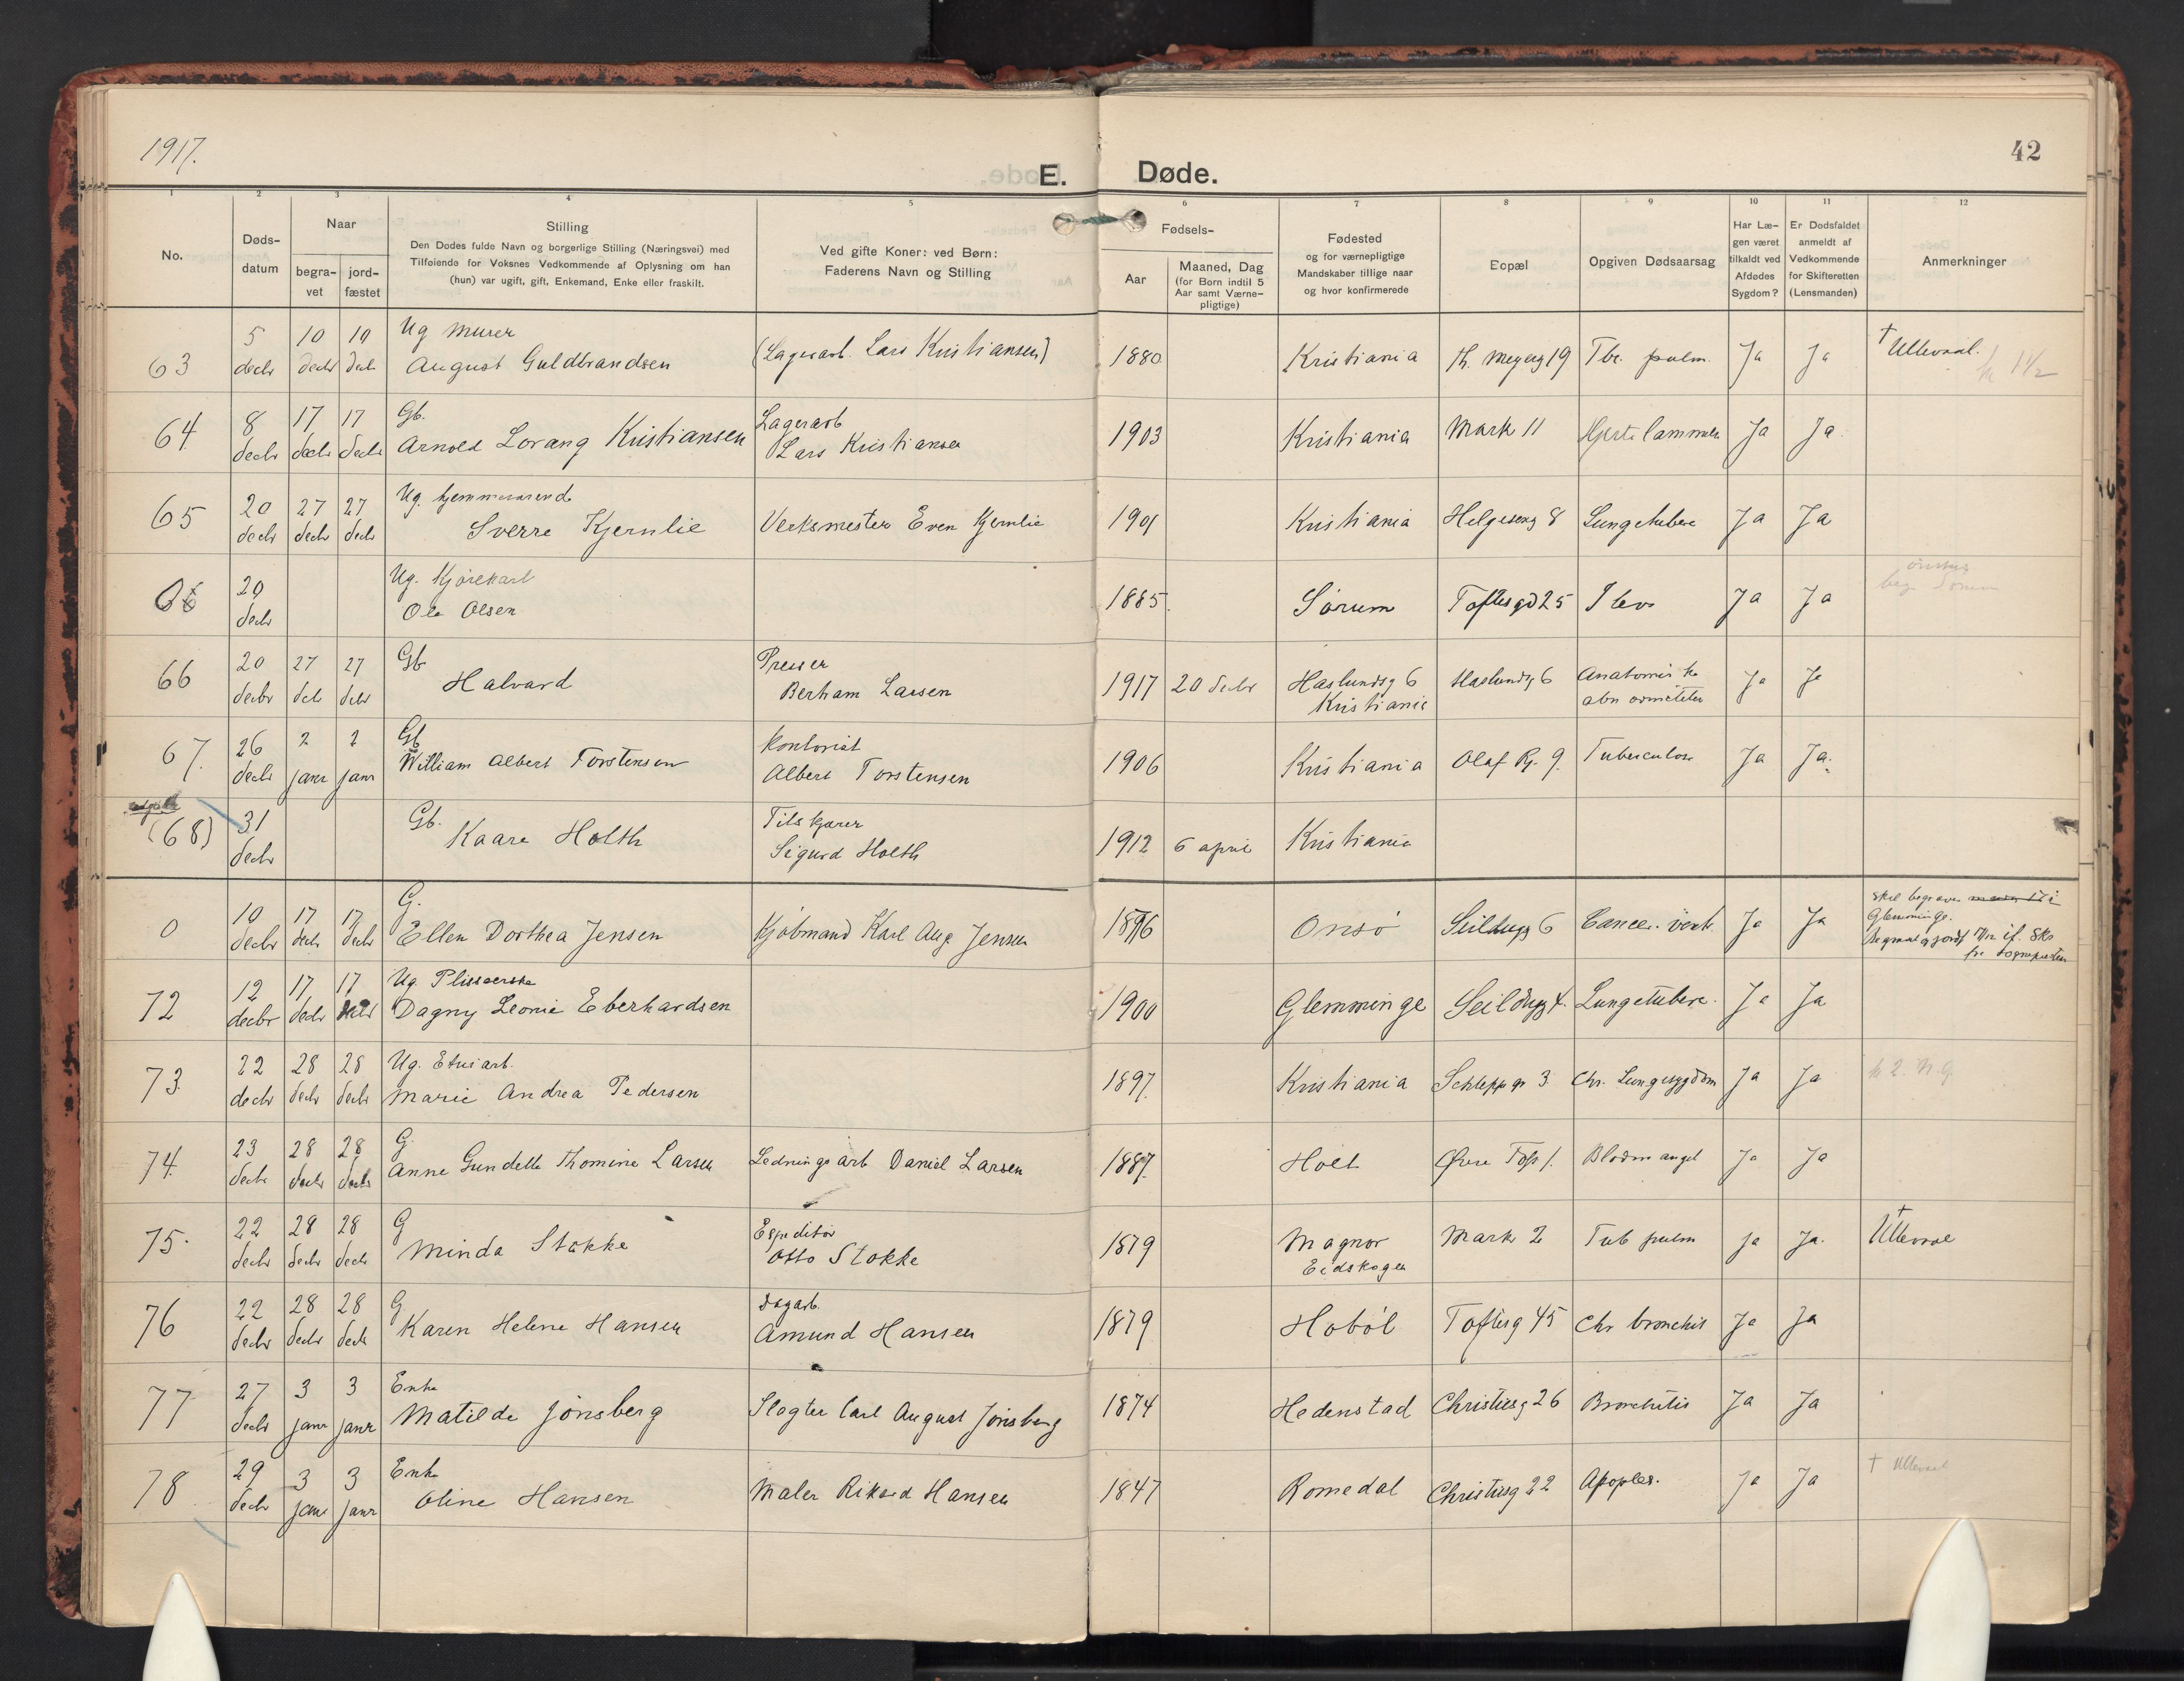 1917.
42
E. Døde.
1 2 3 4 5 6 7 8 9 10 11 12
No.
Døds-
datum
Naar
begra-
vet
jord-
fæstet
Stilling
Den Dødes fulde Navn og borgerlige Stilling (Næringsvei) med
Tilføiende for Voksnes Vedkommende af Oplysning om han
(hun) var ugift, gift, Enkemand, Enke eller fraskilt.
Ved gifte Koner: ved Børn:
Faderens Navn og Stilling
Fødsels-
Aar
Maaned, Dag
(for Børn indtil 5
Aar samt Værne-
pligtige)
Fødested
og for værnepligtige
Mandskaber tillige naar
og hvor konfirmerede
Bopæl
Opgiven Dødsaarsag
Har Læ-
gen været
tilkaldt ved
Afdødes
Sygdom?
Er Dødsfaldet
anmeldt af
Vedkommende
for Skifteretten
(Lensmanden)
Anmerkninger
5 10 10 Ug Murer
63 decbr decbr decbr August Guldbrandsen (Lagerarb. Lars Kristiansen) 1880 Kristiania Th. Meyersg 19 Tbr. pulm. Ja Ja † Ullevaal.
8 17 17 Gb. Lagerarb
64 decbr decbr decbr Arnold Lorang Kristiansen Lars Kristiansen 1903 Kristiania Mark 11 Hjertelammelse Ja Ja
20 27 27 Ug. hjemmeværende
65 decbr decbr decbr Sverre Kjernlie Verksmester Even Kjernlie 1901 Kristiania Helgesensg 8 Lungetuberc Ja Ja
20 Ug. Kjørekarl
decbr Ole Olsen 1885. Sørum Toftesgd 25 Ja Ja
20 27 27 Gb Presser
66 decbr decbr decbr Halvard Bertram Larsen 1917 20 decbr Haslundsg 6 Haslundsg 6 Ja Ja
Kristiania
26 2 2 Gb Kontorist
67. decbr janr janr William Albert Torstensen Albert Torstensen 1906 Kristiania Olaf R. 9. Tuberculose Ja Ja.
31 Gb. Tilskjærer
(68) decbr Kaare Holth Sigurd Holth 1912 6 april Kristiania
10 17 17 G.
0 decbr decbr decbr Ellen Dorthea Jensen Kjøbmand Karl Aug. Jensen 1896 Onsø Seildugsg 6 Cancer. vent. Ja Ja
Skal begraves i
Glemminge.
12 17 17 Ug. Plisseerske
72 decbr decbr decbr Dagny Leonie Eberhardsen 1900 Glemminge Seildugsg 4. Lungetuberc. Ja Ja
22 28 28 Ug. Etuiarb.
73 decbr decbr decbr Marie Andrea Pedersen 1897. Kristiania Schleppgr 3 Chr. Lungesygdom Ja Ja
23 28 28 G.
74. decbr decbr decbr Anne Gundelle Thomine Larsen Ledningsarb Daniel Larsen 1887. Holt Øvre Fos 1. Blodmangel Ja Ja
22 28 28 G Expeditør
75. decbr decbr decbr Minda Stokke Otto Stokke 1879 Magnor Mark 2 Tub pulm Ja Ja. † Ullevaal
Eidskogen
22 28 28 G Dagarb.
76 decbr decbr decbr Karen Helene Hansen Amund Hansen 1879 Hobøl Toftesg 45 Chr bronchit Ja Ja
27 3 3 Enke
77 decbr janr janr Matilde Jønsberg Slagter Carl August Jønsberg 1874 Hedenstad Christiesg 26 Bronchitis Ja Ja
29 3 3 Enke
78 decbr janr janr Oline Hansen Maler Rikard Hansen 1847 Romedal Christiesg 22 Apoplex. Ja Ja † Ullevaal